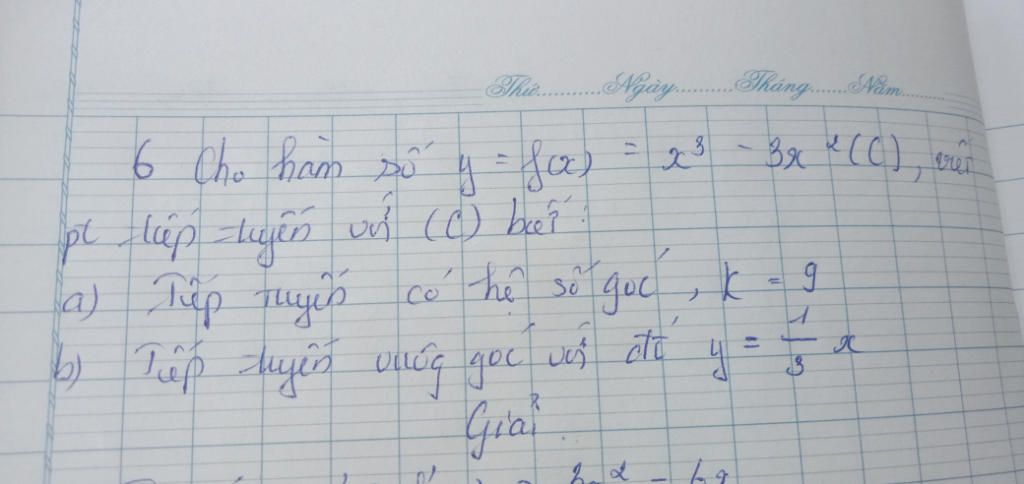 Thứ.......... Ngày.......... Tháng...... Năm.......
6 Cho hàm số y = f(x) = x³ - 3x² (C), viết
pt tiếp tuyến với (C) biết:
a) Tiếp tuyến có hệ số góc, k = 9
b) Tiếp tuyến vuôg góc với đt y = 1/3 x
Giải.